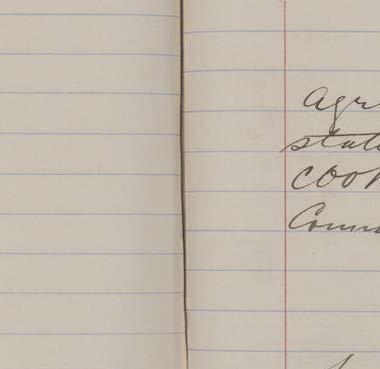 Agr
stat
coo
Comm